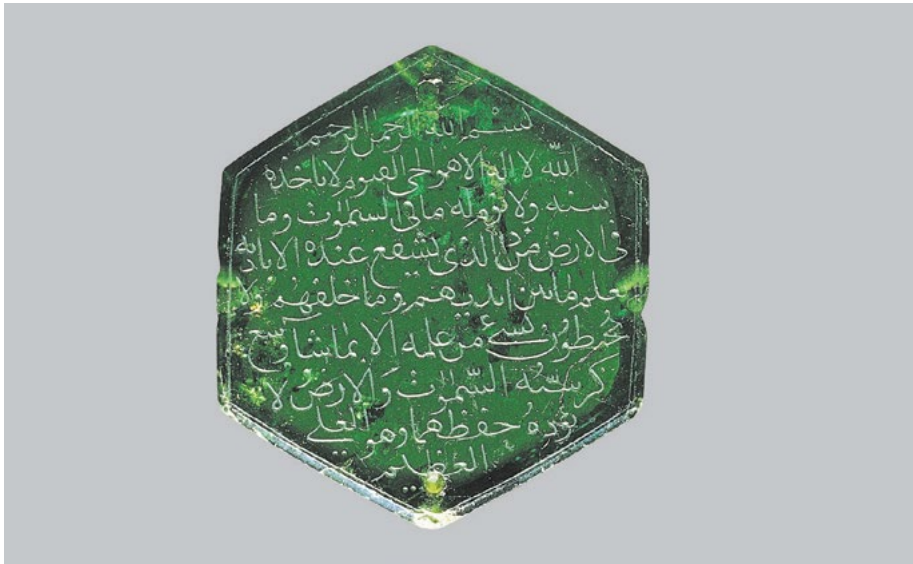 بسم الله الرحمن الرحيم
الله لا اله الا هو الحى القيوم لا تاخذه
سنه ولا نوم له ما فى السمٰوٰت وما
فى الارض من الذى يشفع عنده الا باذنه
يعلم ما بين ايديهم وما خلفهم ولا
يحيطون بشىء من علمه الا بما شا وسع
كرسيّه السّمٰوٰت والارض ولا
يوده حفظهما وهو العلى
العظيم